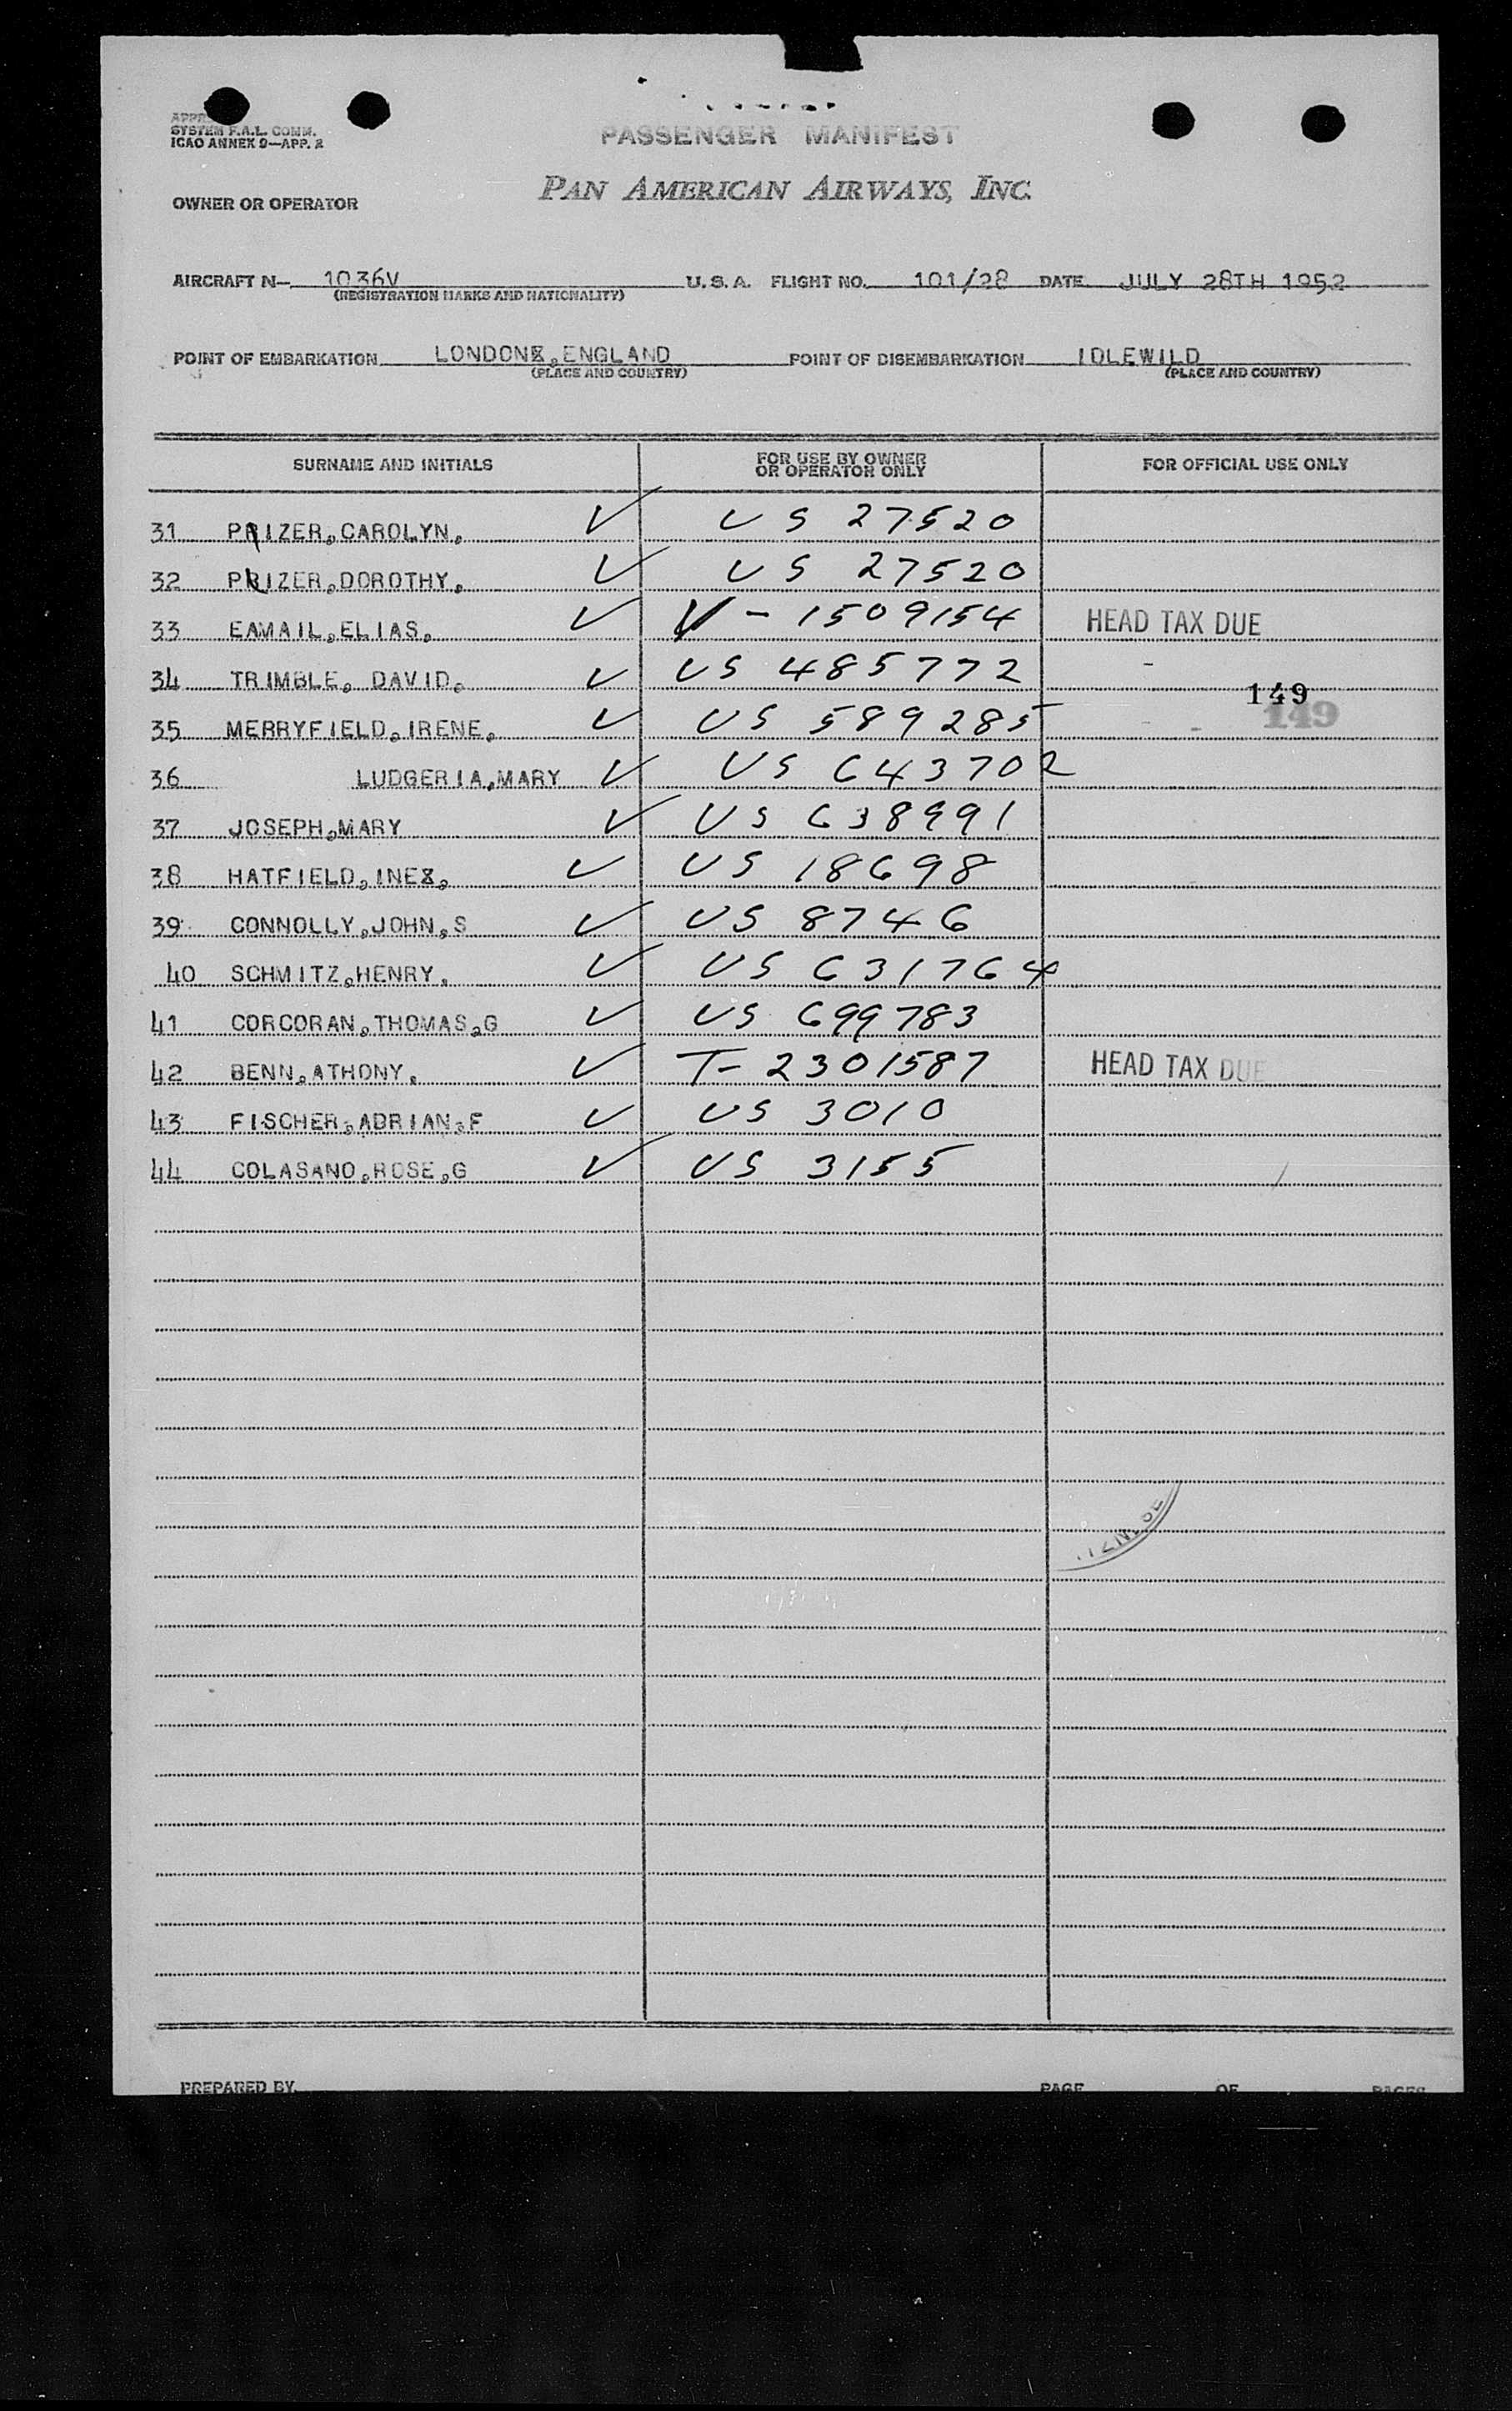 SYSTEM F.A.L. COMM.
ICAO ANNEX 9—APP. 2
PASSENGER MANIFEST
PAN AMERICAN AIRWAYS, INC.
OWNER OR OPERATOR
AIRCRAFT N— 1036V U.S.A. FLIGHT NO. 101/28 DATE JULY 28TH 1952
(REGISTRATION MARKS AND NATIONALITY)
POINT OF EMBARKATION LONDONX,ENGLAND POINT OF DISEMBARKATION IDLEWILD
(PLACE AND COUNTRY) (PLACE AND COUNTRY)
SURNAME AND INITIALS FOR USE BY OWNER OR OPERATOR ONLY FOR OFFICIAL USE ONLY
31 PRIZER,CAROLYN, ✓ US 27520
32 PRIZER,DOROTHY, ✓ US 27520
33 EAMAIL,ELIAS, ✓ V-1509154 HEAD TAX DUE
34 TRIMBLE, DAVID, ✓ US 485772
149
35 MERRYFIELD,IRENE, ✓ US 589285 149
36 LUDGERIA,MARY ✓ US 643702
37 JOSEPH,MARY ✓ US 638991
38 HATFIELD,INEX, ✓ US 18698
39 CONNOLLY,JOHN,S ✓ US 8746
40 SCHMITZ,HENRY, ✓ US 631764
41 CORCORAN,THOMAS,G ✓ US 699783
42 BENN,ATHONY, ✓ T-2301587 HEAD TAX DUE
43 FISCHER,ADRIAN,F ✓ US 3010
44 COLASANO,ROSE,G ✓ US 3155
PREPARED BY PAGE OF PAGES